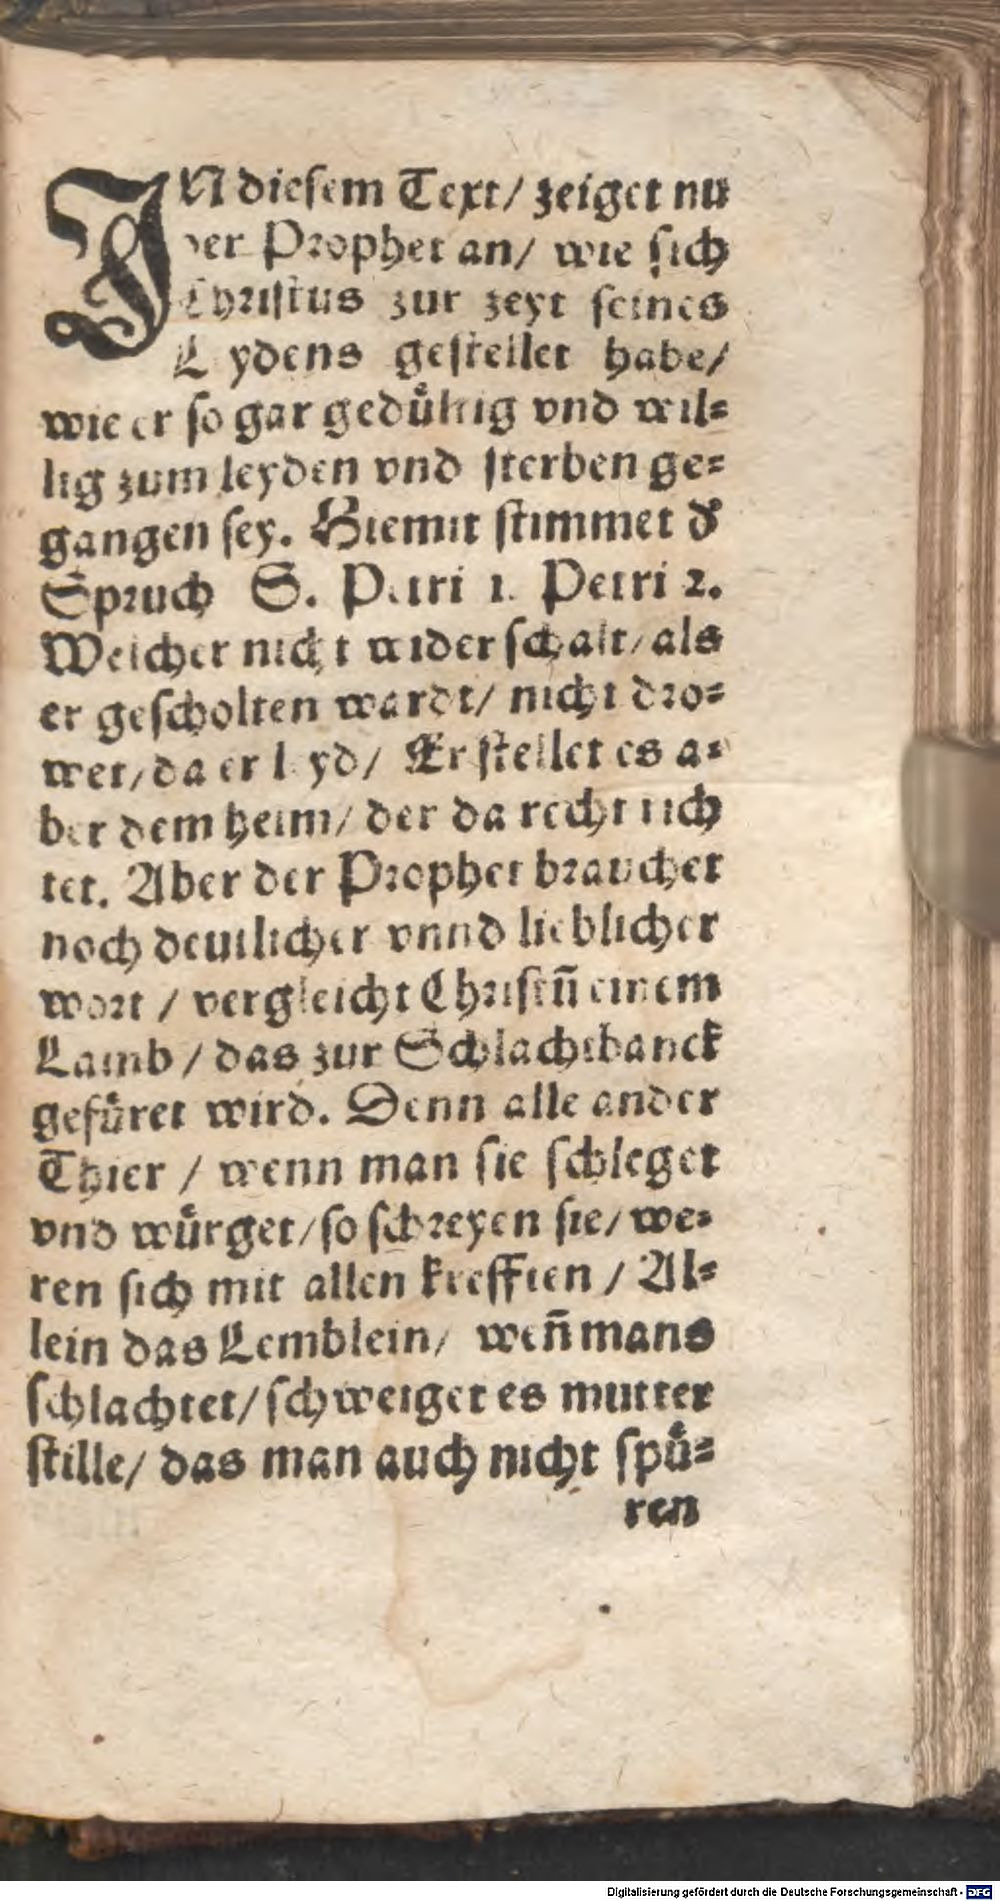 IN dieſem Text/ zeiget nu
der Prophet an/ wie ſich
Chriſtus zur zeyt ſeines
Lydens geſtellet habe/
wie er ſo gar gedůltig vnd wil⸗
lig zum leyden vnd ſterben ge⸗
gangen ſey. Hiemit ſtimmet d̕
Spruch S. Petri 1. Petri 2.
Welcher nicht widerſchalt/ als
er geſcholten wardt/ nicht dro⸗
wet/ da er lyd/ Er ſtellet es a⸗
ber dem heim/ der da recht rich
tet. Aber der Prophet brauchet
noch deutlicher vnnd lieblicher
wort / vergleicht Chriſtū einem
Lamb / das zur Schlachtbanck
gefůret wird. Denn alle ander
Thier / wenn man ſie ſchleget
vnd wůrget/ ſo ſchreyen ſie/ we⸗
ren ſich mit allen krefften / Al⸗
lein das Lemblein/ wen̄ mans
ſchlachtet/ ſchweiget es mutter
ſtille/ das man auch nicht ſpů⸗
ren
Digitalisierung gefördert durch die Deutsche Forschungsgemeinschaft - DFG